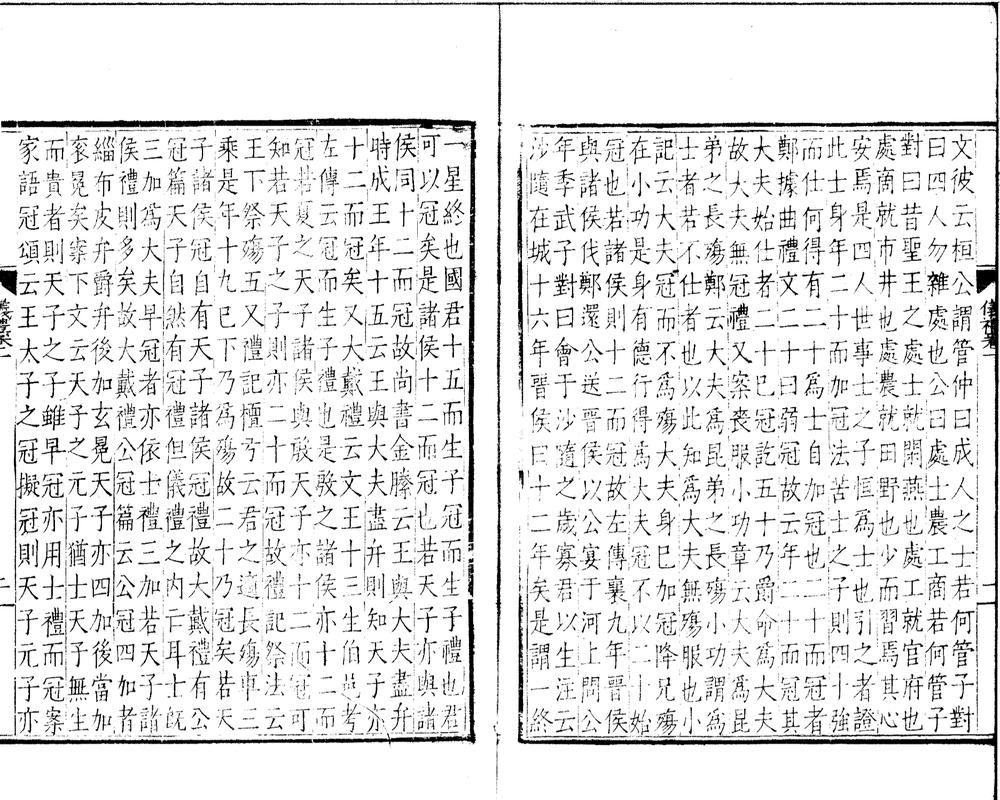 文彼云桓公謂管仲曰成人之士若何管子對
曰四人勿雜處也公曰處士農工商若何管子
對曰昔聖王之處士就閒燕也處工就官府也
處商就市井也處農就田野也少而習焉其心
安焉是四人世事士之子恒爲士也引之者證
此士身年二十而加冠法苦士之子則四十強
而仕何得有二十爲士自加冠也二十而冠者
鄭據曲禮文二十曰弱冠故云年二十而冠其
大夫始仕者二十巳冠訖五十乃爵命爲大夫
故大夫無冠禮又案喪服小功章云大夫爲昆
弟之長殤鄭云大夫爲昆弟之長殤小功謂爲
士者若不仕者也以此知爲大夫無殤服也小
記云大夫冠而不爲殤大夫身巳加冠降兄殤
在小功是身有德行得爲大夫冠不以二十始
冠也若諸侯則十二而冠故左傳襄九年晉侯
與諸侯伐鄭還公送晉侯以公宴于河上問公
年季武子對曰會于沙隨之歲寡君以生注云
沙隨在城十六年晉侯曰十二年矣是謂一終
一星終也國君十五而生子冠而生子禮也君
可以冠矣是諸侯十二而冠也若天子亦與諸
侯同十二而冠故尚書金縢云王與大夫盡弁
時成王年十五云王與大夫盡弁則知天子亦
十二而冠矣又大戴禮云文王十三生伯邑考
左傳云冠而生子禮也是殷之諸侯亦十二而
冠若夏之天子諸侯與殷天子亦十二而冠可
知若天子之子則亦二十而冠故禮記祭法云
王下祭殤五又禮記檀弓云君之適長殤車三
乘是年十九巳下乃爲殤故二十乃冠矣若天
子諸侯冠自有天子諸侯冠禮故大戴禮有公
冠篇天子自然有冠禮但儀禮之內亡耳士旣
三加爲大夫早冠者亦依士禮三加若天子諸
侯禮則多矣故大戴禮公冠篇云公冠四加者
緇布皮弁爵弁後加玄冕天子亦四加後當加
袞冕矣案下文云天子之元子猶士天子無生
而貴者則天子之子雖早冠亦用士禮而冠案
家語冠頌云王太子之冠擬冠則天子元子亦